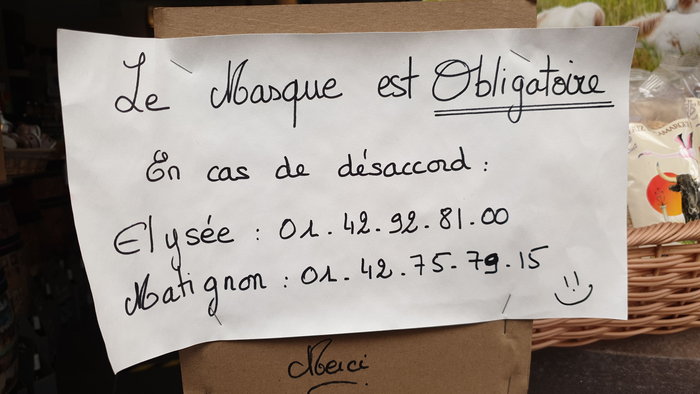 Le Masque est Obligatoire
En cas de désaccord :
Elysée : 01.42.92.81.00
Matignon : 01.42.75.79.15
Merci